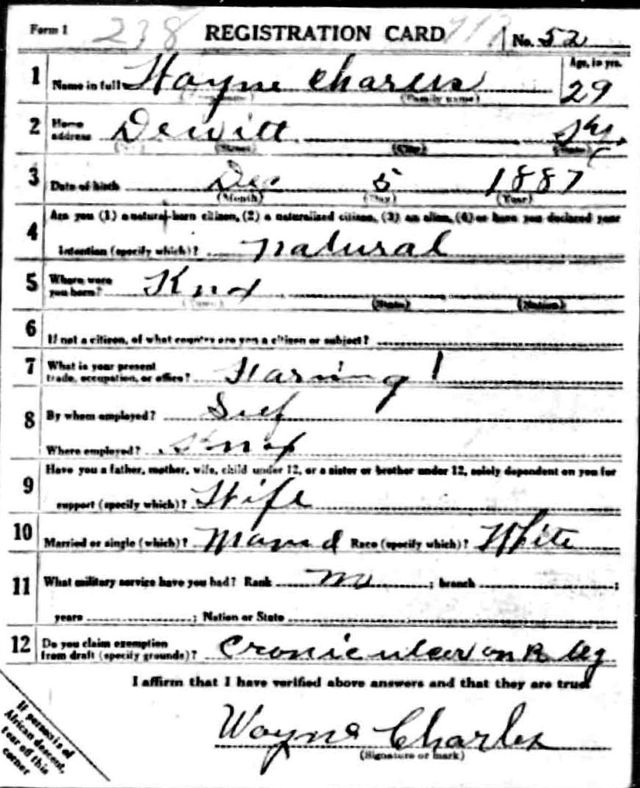 Form 1 238 REGISTRATION CARD No. 52
1 Name in full Wayne Charles Age, in yrs. 29
(Family name)
2 Home address Dewitt Ky
(Street) (City) (State)
3 Date of birth Dec 5 1887
(Month) (Day) (Year)
4 Are you (1) a natural-born citizen, (2) a naturalized citizen, (3) an alien, (4) or have you declared your
intention (specify which)? natural
5 Where were you born? Knox
(Town) (State) (Nation)
6 If not a citizen, of what country are you a citizen or subject?
7 What is your present trade, occupation, or office? Farming
8 By whom employed? Self
Where employed? Knox
9 Have you a father, mother, wife, child under 12, or a sister or brother under 12, solely dependent on you for
support (specify which)? Wife
10 Married or single (which)? Maried Race (specify which)? White
11 What military service have you had? Rank no ; branch ;
years ; Nation or State
12 Do you claim exemption from draft (specify grounds)? Cronic ulcer on R leg
I affirm that I have verified above answers and that they are true
Wayne Charles
(Signature or mark)
If person is of
African descent,
tear off this
corner